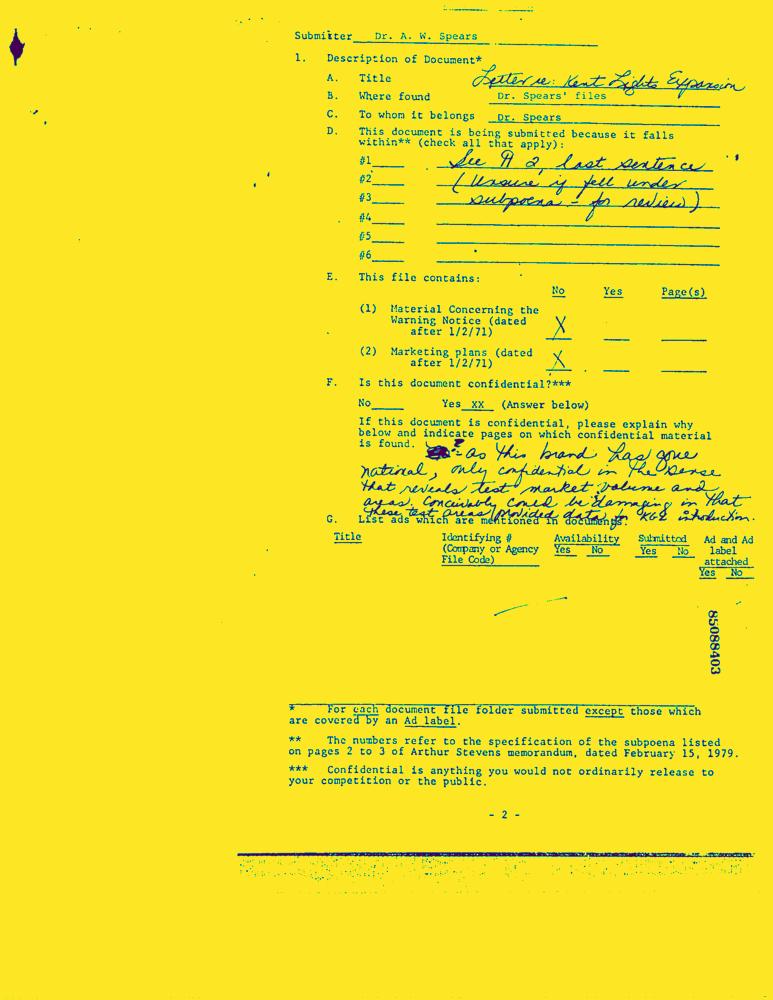 Submitter Dr. A. W. Spears
1. Description of Document*
A. Title Letter re: Kent Lights Expansion
B. Where found Dr. Spears' files
C. To whom it belongs Dr. Spears
D. This document is being submitted because it falls
within** (check all that apply):
#1 See ¶ 2, last sentence
#2 (Unsure if fell under
#3 subpoena - for review)
#4
#5
#6
E. This file contains:
No Yes Page(s)
(1) Material Concerning the
Warning Notice (dated
after 1/2/71) X
(2) Marketing plans (dated
after 1/2/71) X
F. Is this document confidential?***
No Yes XX (Answer below)
If this document is confidential, please explain why
below and indicate pages on which confidential material
is found. as this brand has gone
national, only confidential in the sense
that reveals test market volume and
areas. Conceivably could be damaging in that
these test areas provided data for KGL introduction.
G. List ads which are mentioned in documents.
Title Identifying # Availability Submitted Ad and Ad
(Company or Agency Yes No Yes No label
File Code) attached
Yes No
85088403
* For each document file folder submitted except those which
are covered by an Ad label.
** The numbers refer to the specification of the subpoena listed
on pages 2 to 3 of Arthur Stevens memorandum, dated February 15, 1979.
*** Confidential is anything you would not ordinarily release to
your competition or the public.
- 2 -